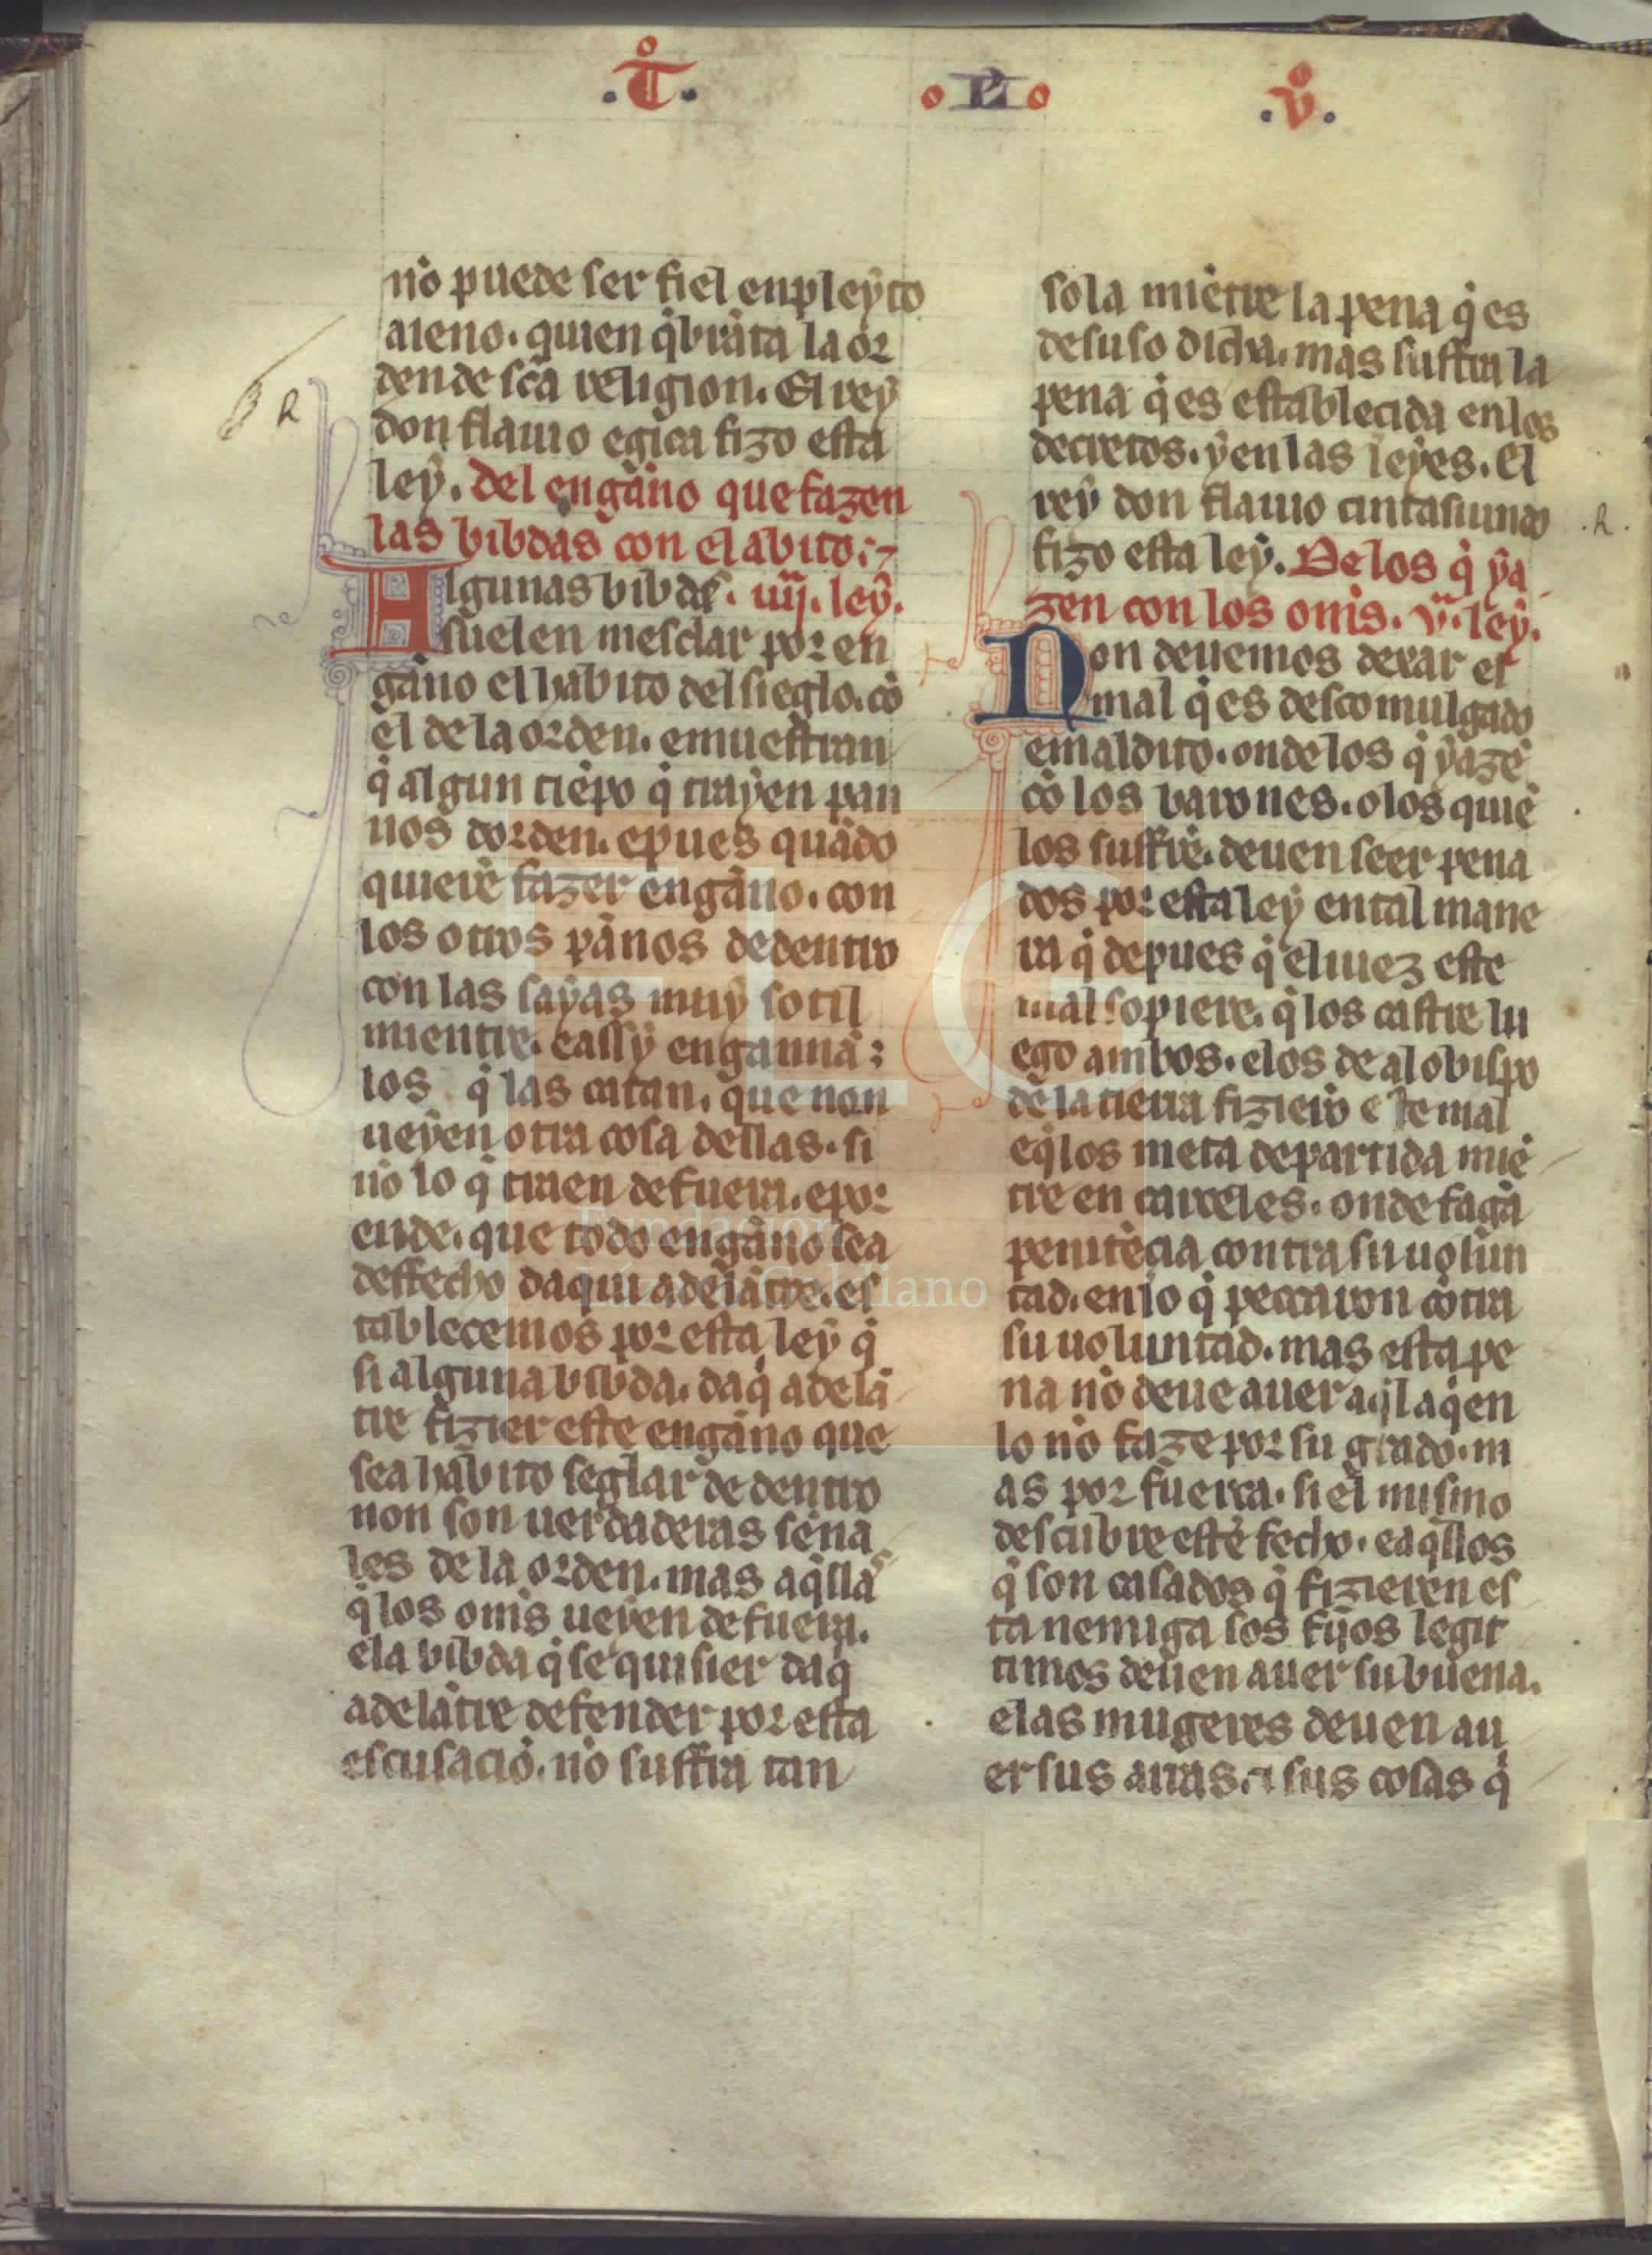 .T̊.
o P̲ o
.v̊.
nõ puede ser fiel en pleyto
aieno. quien q̇brãta la or
den de sc̃a religion. El rey
don flauio egica fizo esta
ley. del engãno que fazen
las bibdas con el abito:~
Algunas bibdas. iiij. ley.
suelen mesclar por en
gãno el habito del sieglo. cõ
el de la orden. e muestran
q̇ algun tiẽpo q̇ trayen pan
nos dorden. e pues quãdo
quierẽ fazer engãno. con
los otros pãnos de dentro
con las sayas muy sotil
mientre. e assy engannã:
los q̇ las catan. que non
ueyen otra cosa dellas. si
nõ lo q̇ traen de fuera. e por
ende. que todo engãno sea
deffecho daqui adelãtre. es
tablecemos por esta ley q̇
si alguna bibda. daq̇ adelã
tre fizier este engãno que
sea habito seglar de dentro
non son uerdaderas sẽna
les de la orden. mas aq̇llas
q̇ los om̃s ueyen de fuera.
e la bibda q̇ se quisier daq̇
adelãtre defender por esta
escusaciõ. nõ suffra tan
sola miẽtre la pena q̇ es
de suso dicha. mas suffra la
pena q̇ es establecida en los
decretos. y en las leyes. El
rey don flauio cintasiundo
fizo esta ley. De los q̇ ya
zen con los om̃s. vª. ley.
Non deuemos dexar el
mal q̇ es descomulgado
e maldito. onde los q̇ yazẽ
cõ los barones. o los quiẽ
los suffrẽ. deuen seer pena
dos por esta ley en tal mane
ra q̇ depues q̇ el iuez este
mal sopiere. q̇ los castre lu
ego ambos. e los de al obispo
de la tierra fizierõ este mal
e q̇ los meta departida miẽ
tre en carceles. onde fagã
penitẽcia contra su uolun
tad. en lo q̇ peccaron cõtra
su uoluntad. mas esta pe
na nõ deue auer aq̇l a q̇en
lo nõ faze por su grado. m
as por fuerca. si el mismo
descubre este fecho. e aq̇llos
q̇ son casados q̇ fizieren es
ta nemiga los fijos legit
timos deuen auer su buena.
e las mugeres deuen au
er sus arras. e sus cosas q̇
R
.R.
FLG
Fundación
Lázaro Galdiano